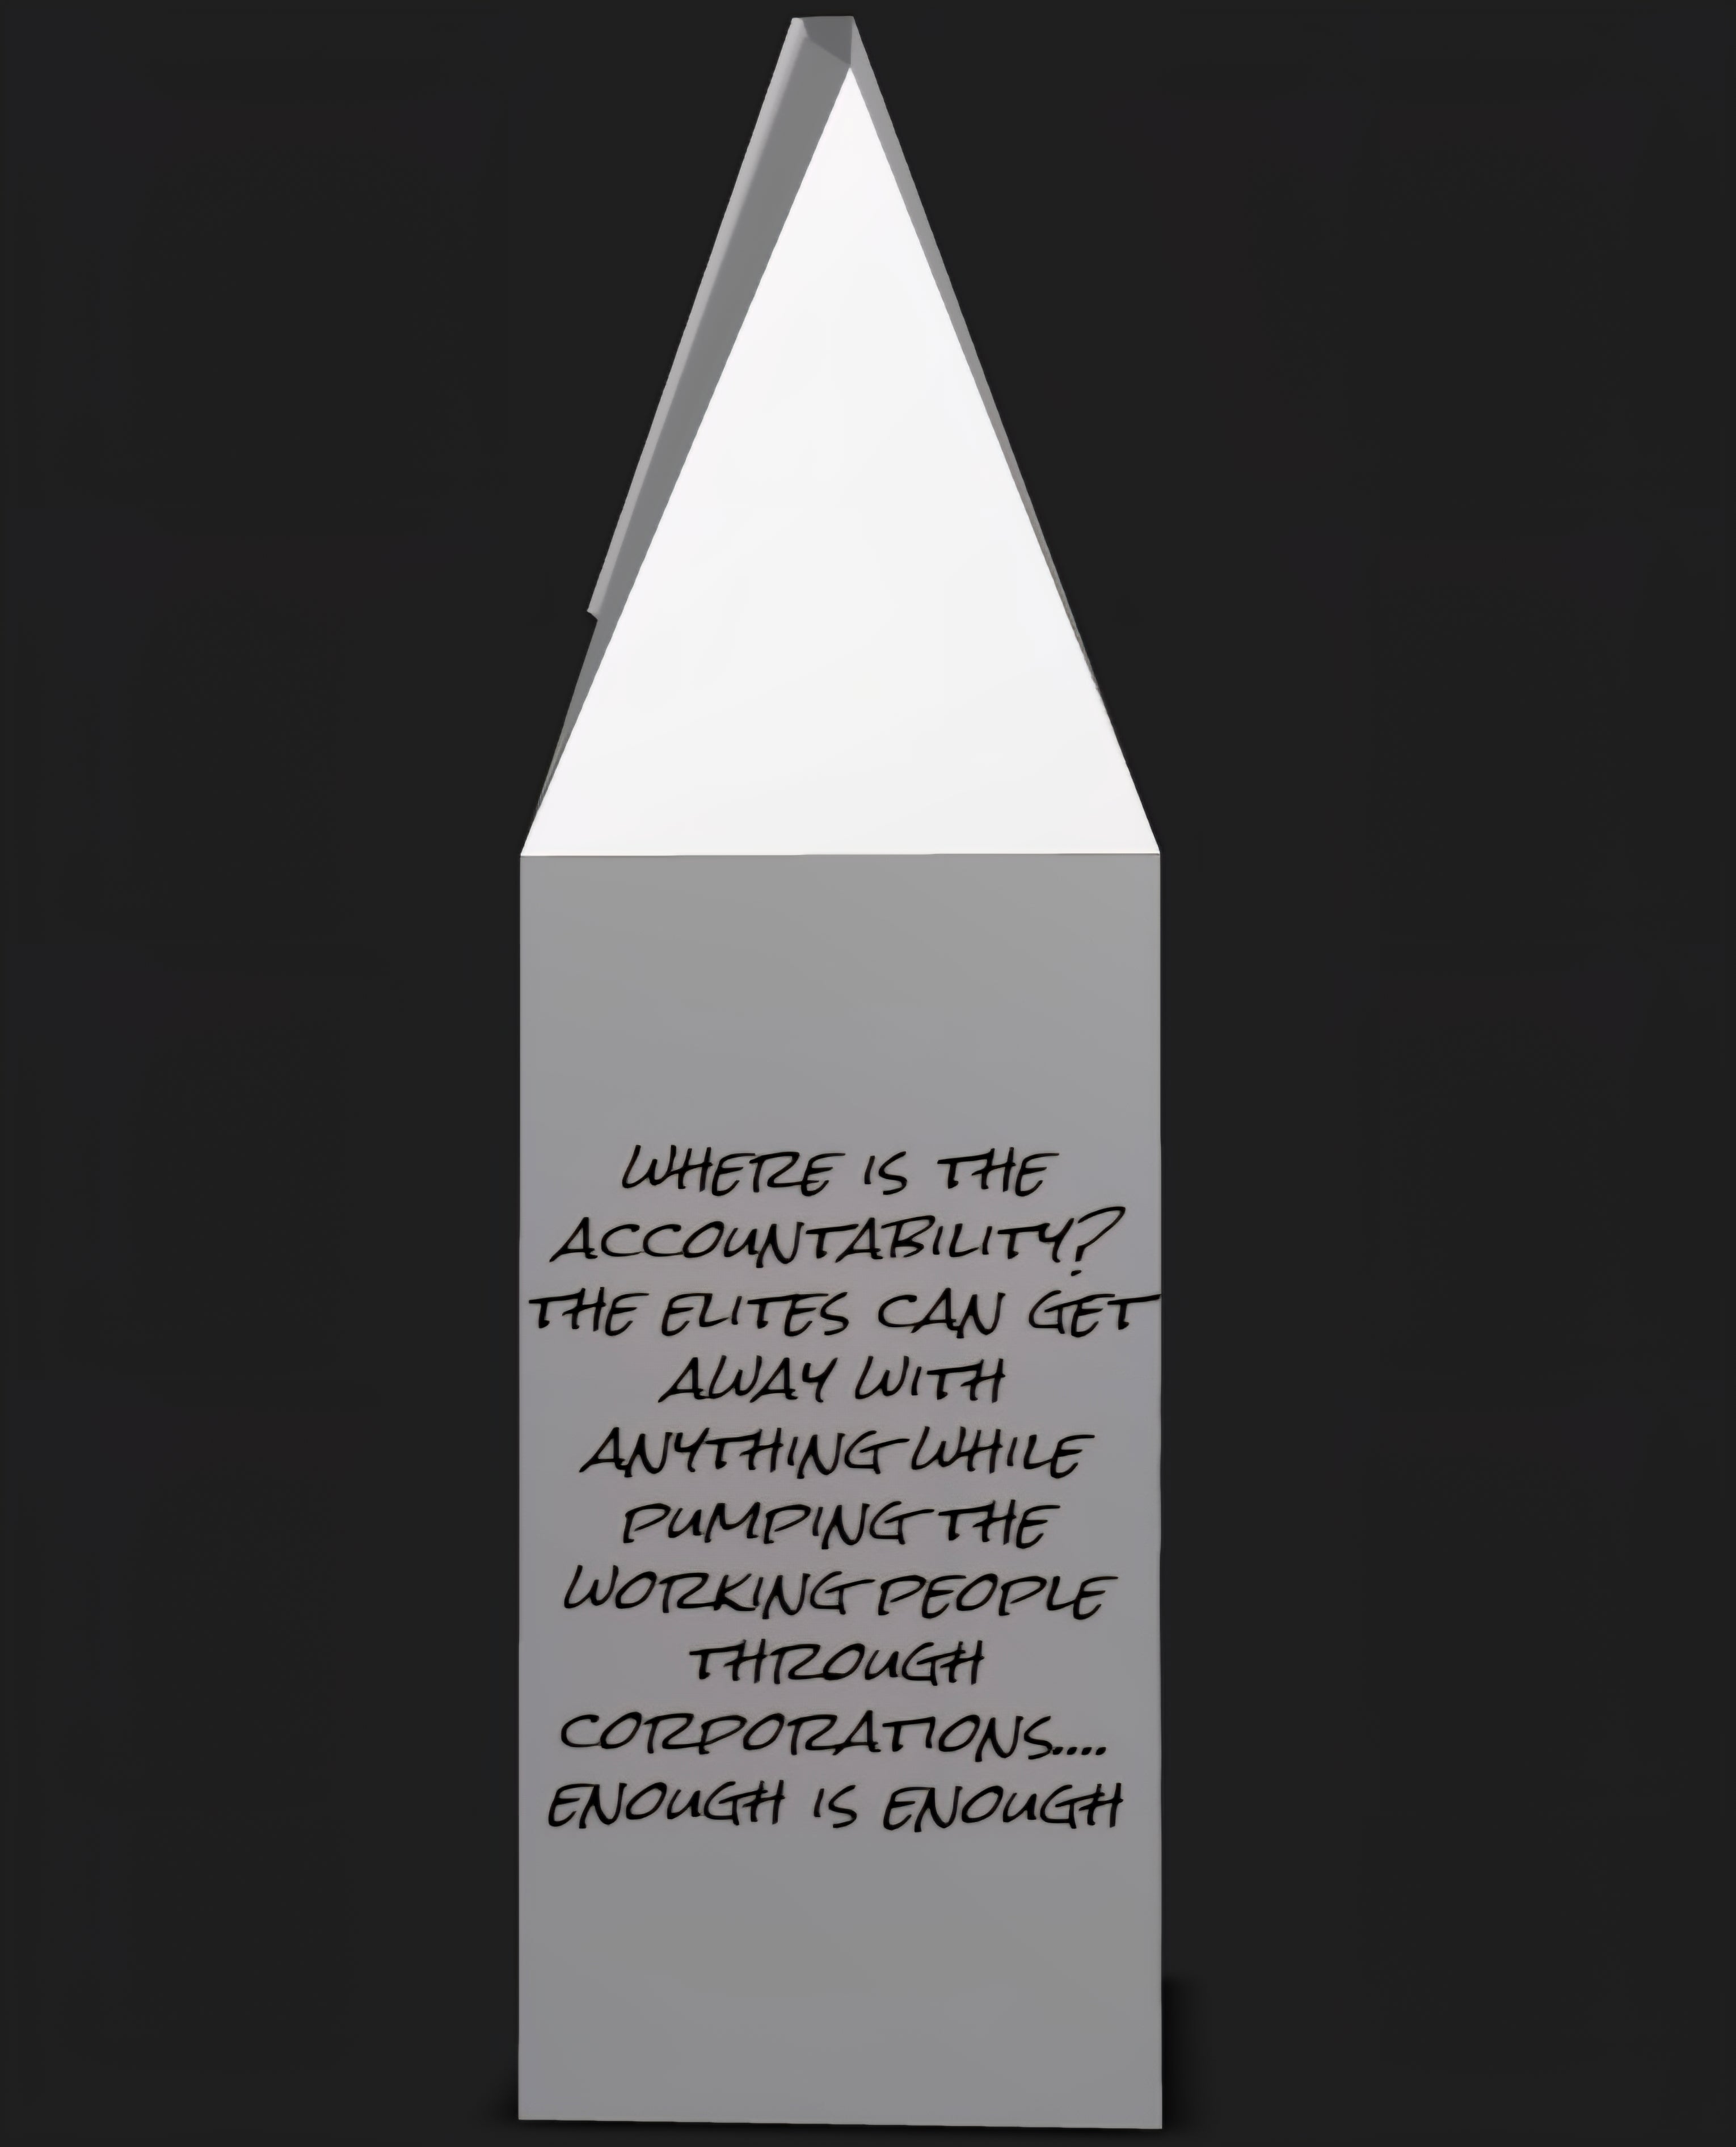 WHERE IS THE
ACCOUNTABILITY?
THE ELITES CAN GET
AWAY WITH
ANYTHING WHILE
PUMPING THE
WORKING PEOPLE
THROUGH
CORPORATIONS....
ENOUGH IS ENOUGH